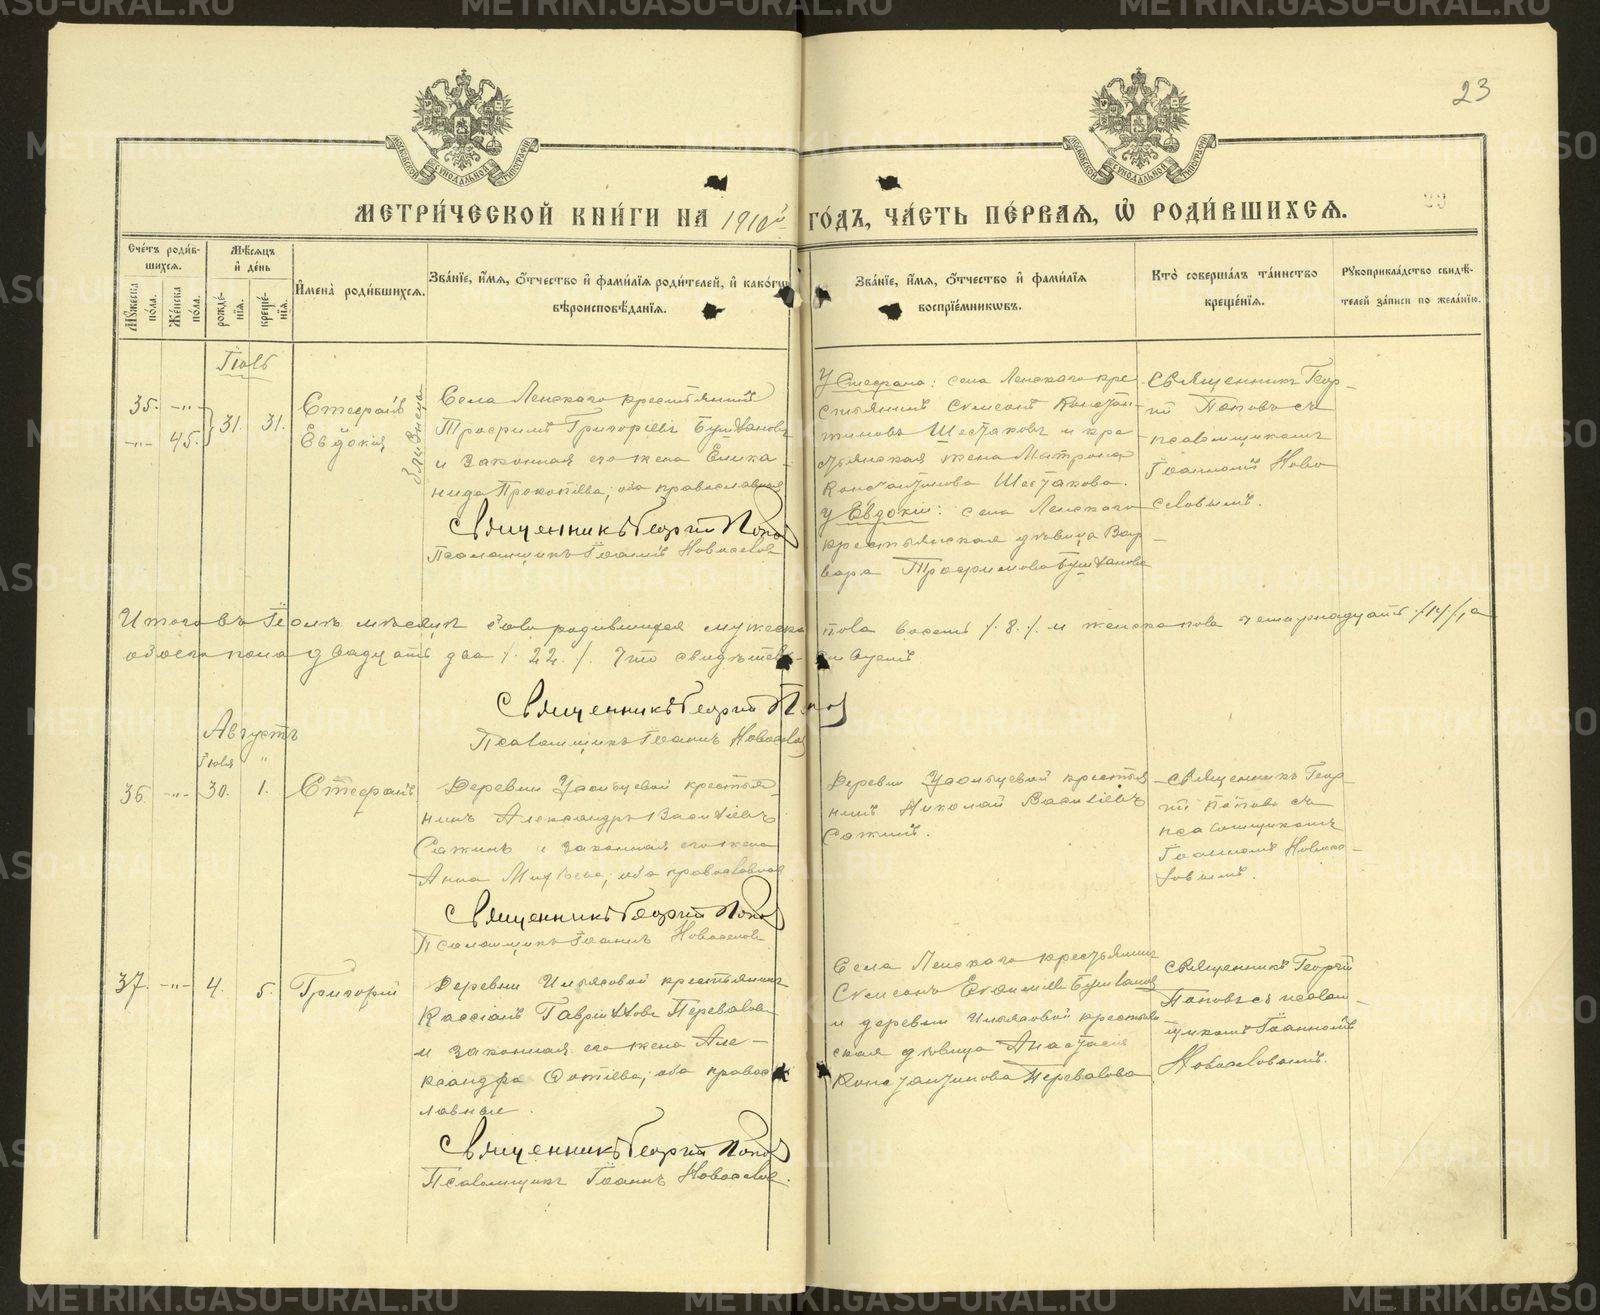 23
МЕТРИЧЕСКОЙ КНИГИ НА 1910й ГОДЪ, ЧАСТЬ ПЕРВАЯ, Ѡ РОДИВШИХСЯ.
Счетъ родившихся.
Мужеска пола.
Женска пола.
Мѣсяцъ и день
рожденія.
крещенія.
Имена родившихся.
Званіе, имя, отчество и фамилія родителей, и какого вѣроисповѣданія.
Званіе, имя, отчество и фамилія воспріемниковъ.
Кто совершалъ таинство крещенія.
Рукоприкладство свидѣтелей записи по желанію.
Іюль
35. -"-
-"- 45.
31. 31.
Стефанъ
Евдокія
близнецы
Села Ленскаго крестьянинъ
Трофимъ Григорьевъ
и законная его жена
Прокопіева, оба православные
Священникъ Георгій Попов
Псаломщикъ Іоаннъ Новоселов
У Стефана: села Ленскаго кре-
стьянинъ Симеонъ Констан-
тиновъ Шестаковъ и кре-
стьянская жена Матрона
Константинова Шестакова.
У Евдокіи: села Ленскаго
крестьянская дѣвица Вар-
вара Трофимова
Священникъ Геор-
гій Поповъ съ
псаломщикомъ
Іоанномъ Ново-
селовымъ.
Итого въ Іюлѣ мѣсяцѣ родившихся мужеска пола восемь /.8./ и женска пола четырнадцать /14/, а
обоего пола двадцать два /.22./. Что свидѣтельствуемъ
Священникъ Георгій Попов
Псаломщикъ Іоаннъ Новоселов
Августъ
Іюля "
36 -"- 30. 1.
Стефанъ
Деревни крестья-
нинъ Александръ Васильевъ
Сажинъ и законная его жена
Анна оба православные
Священникъ Георгій Попов
Псаломщикъ Іоаннъ Новоселов
Деревни крестья-
нинъ Николай Васильевъ
Сажинъ.
Священникъ Геор-
гій Поповъ съ
псаломщикомъ
Іоанномъ Новосе-
ловымъ.
37. -"- 4. 5.
Григорій
Деревни крестьянинъ
Кассіанъ Гавріиловъ Перевалов
и законная его жена Але-
ксандра Фотіева, оба правос-
лавные.
Священникъ Георгій Попов
Псаломщикъ Іоаннъ Новоселов.
Села Ленскаго крестьянинъ
Симеонъ
и деревни крестьян-
ская дѣвица Анастасія
Константинова Перевалова.
Священникъ Георгій
Поповъ съ псалом-
щикомъ Іоанномъ
Новоселовымъ.
METRIKI.GASO-URAL.RU